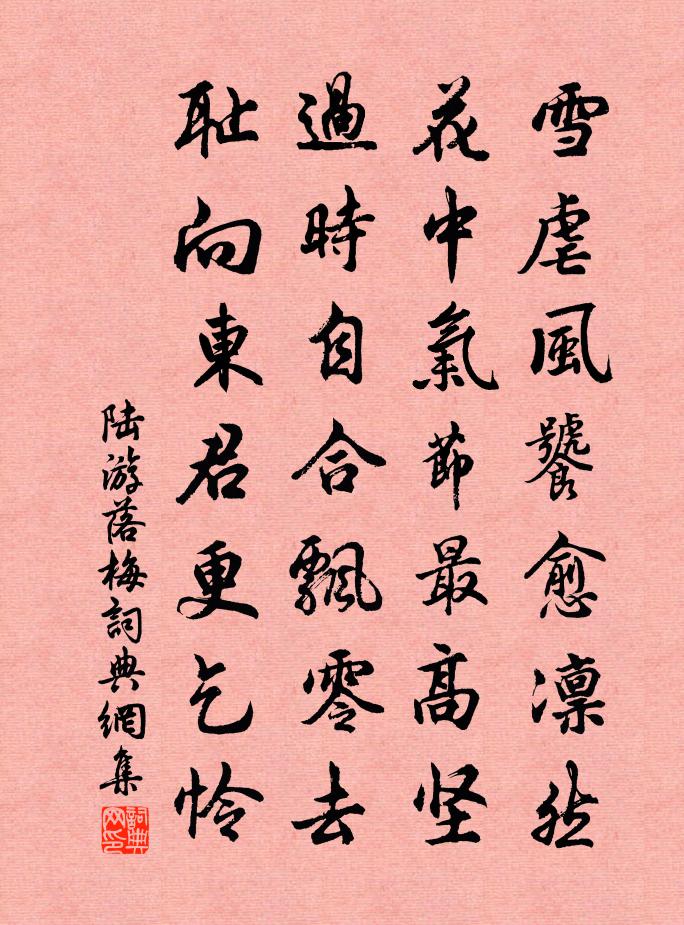 雪虐風饕愈凛然
花中氣節最高坚
過時自合飄零去
耻向東君更乞怜
陆游落梅詞典網集
詞典网印